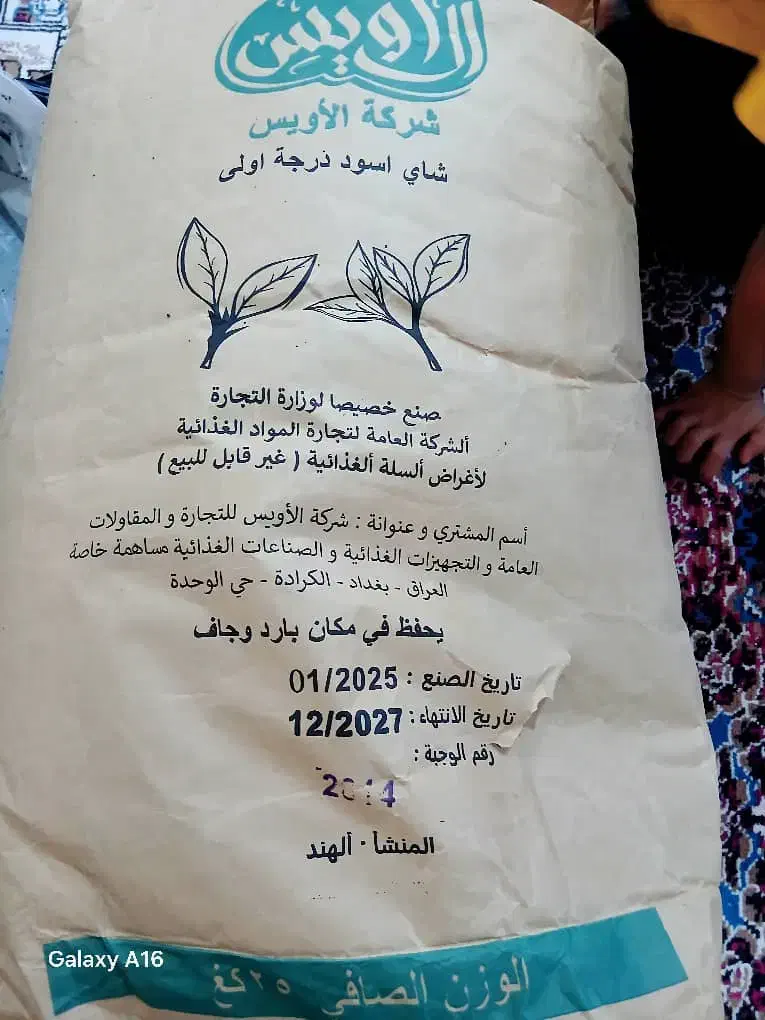 الاويس
شركة الأويس
شاي اسود درجة اولى
صنع خصيصا لوزارة التجارة
ألشركة العامة لتجارة المواد الغذائية
لأغراض ألسلة ألغذائية ( غير قابل للبيع )
أسم المشتري و عنوانة : شركة الأويس للتجارة و المقاولات
العامة و التجهيزات الغذائية و الصناعات الغذائية مساهمة خاصة
العراق - بغداد - الكرادة - حي الوحدة
يحفظ في مكان بارد وجاف
تاريخ الصنع : 01/2025
تاريخ الانتهاء : 12/2027
رقم الوجبة :
المنشأ · ألهند
الوزن الصافي ٢٥ كغ
Galaxy A16